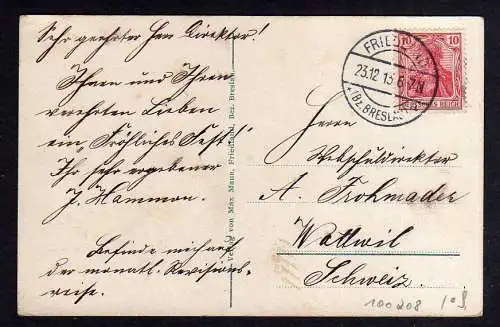 Sehr geehrter Herr Direktor!
Ihnen und Ihren
verehrten Lieben
ein „Fröhliches Fest“!
Ihr sehr ergebener
J. Hammon.
Befinde mich auf
der monatl. Revisions-
reise.
Verlag von Max Mann, Friedland, Bez. Breslau
FRIEDLAND
23.12.13 6-7N
*(Bz. BRESLAU)
10 10
REICH
Herrn
Webschuldirektor
A. Frohmader
Wattwil
Schweiz.
100208